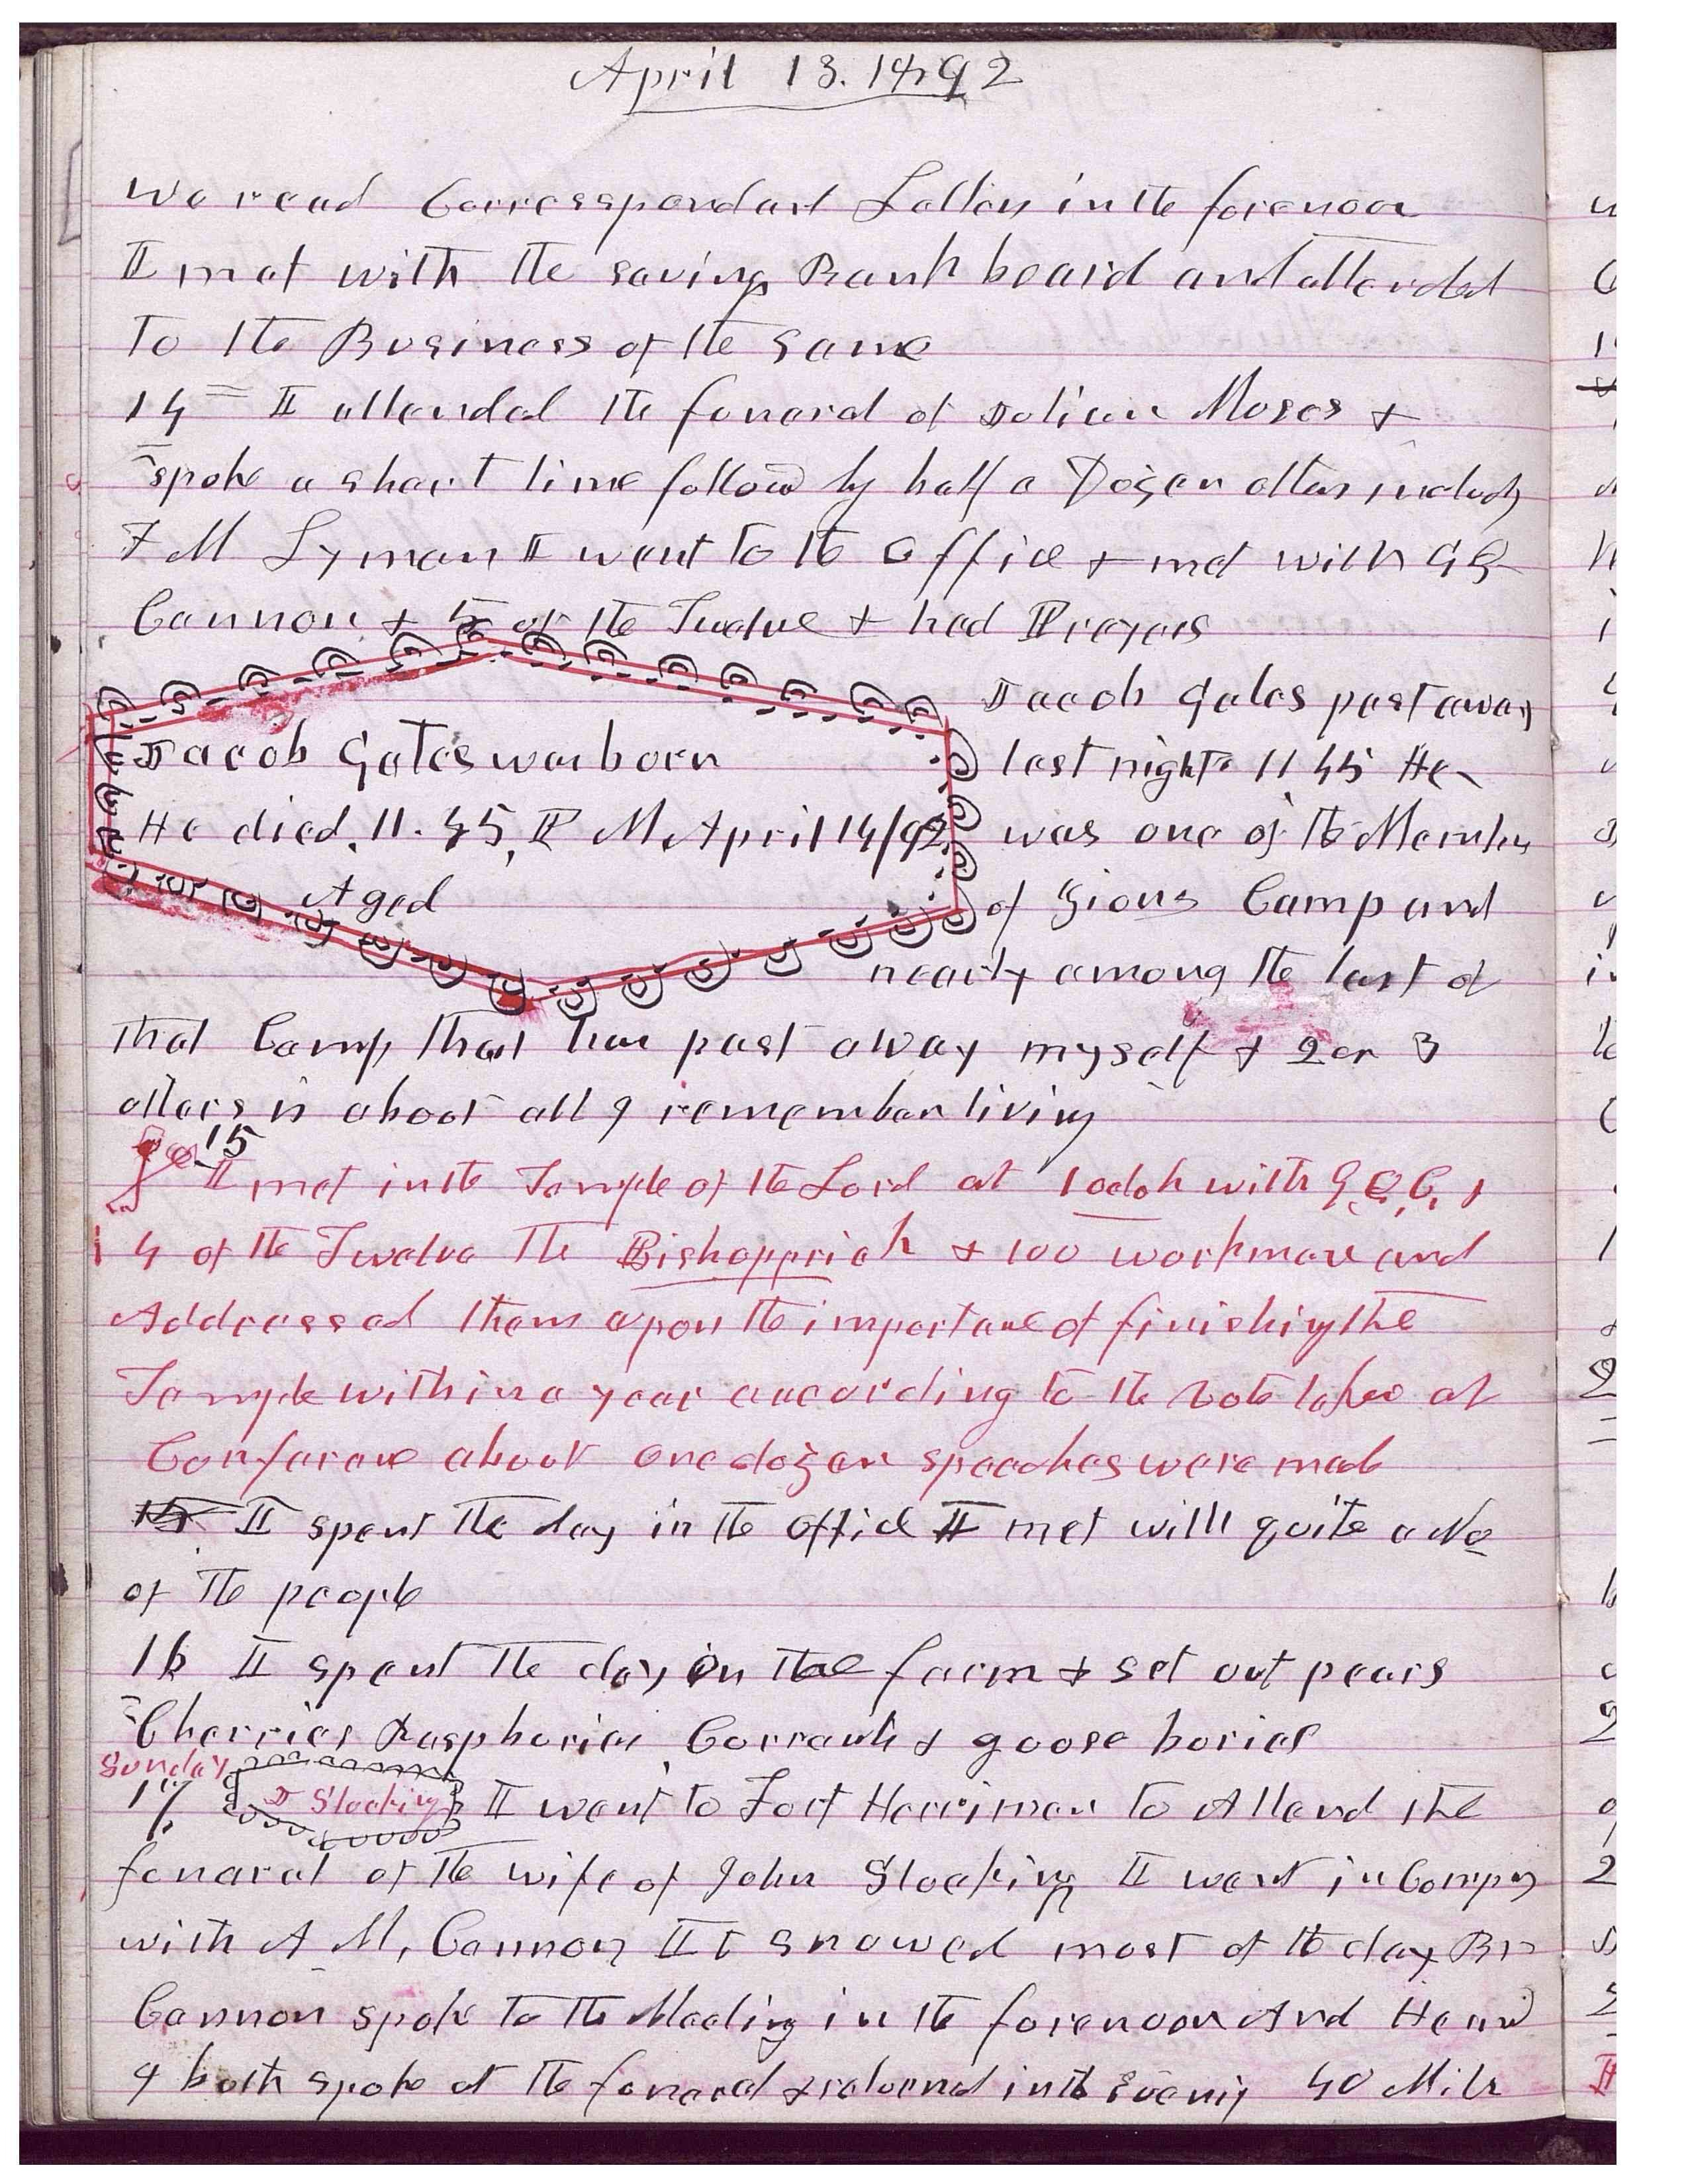 April 13. 1892
We read Correspondant Letters in the forenoon
I met with the savings Bank board and attended
To the Business of the same
14 I attended the foneral of Julian Moses &
spoke a short time followed by half a Dozen others includg
F M Lyman I went to the office & met with G Q
Cannon & 5 of the Twelve & had Prayers
Jacob Gates was born
He died. 11.45, P M, April 14/92
Aged
Jacob Gates past away
last night 11 45 He
was one of the Members
of Zions Camp and
nearly among the last of
that Camp that has past away myself & 2 or 3
others is about all I remember living
15
I met in the Temple of the Lord at 1 oclok with G, Q, C, &
4 of the Twelve The Bishopprick & 100 workmen and
Addressed them upon the importance of finishing the
Temple within a year according to the vote taken at
Conference about one dozen speeches were made
15 I spent the day in the office I met with quite a No
of the people
16 I spent the day on the farm & set out pears
Cherries Raspberries Corrants & goose beries
Sunday
17. J Stocking I went to Fort Herriman to Attend the
foneral of the wife of John Stocking I went in Compny
with A M, Cannon It snowed most of the day Br
Cannon spoke to the Meeting in the forenoon And He and
I both spoke at the foneral & returned in the Evenig 40 Mile